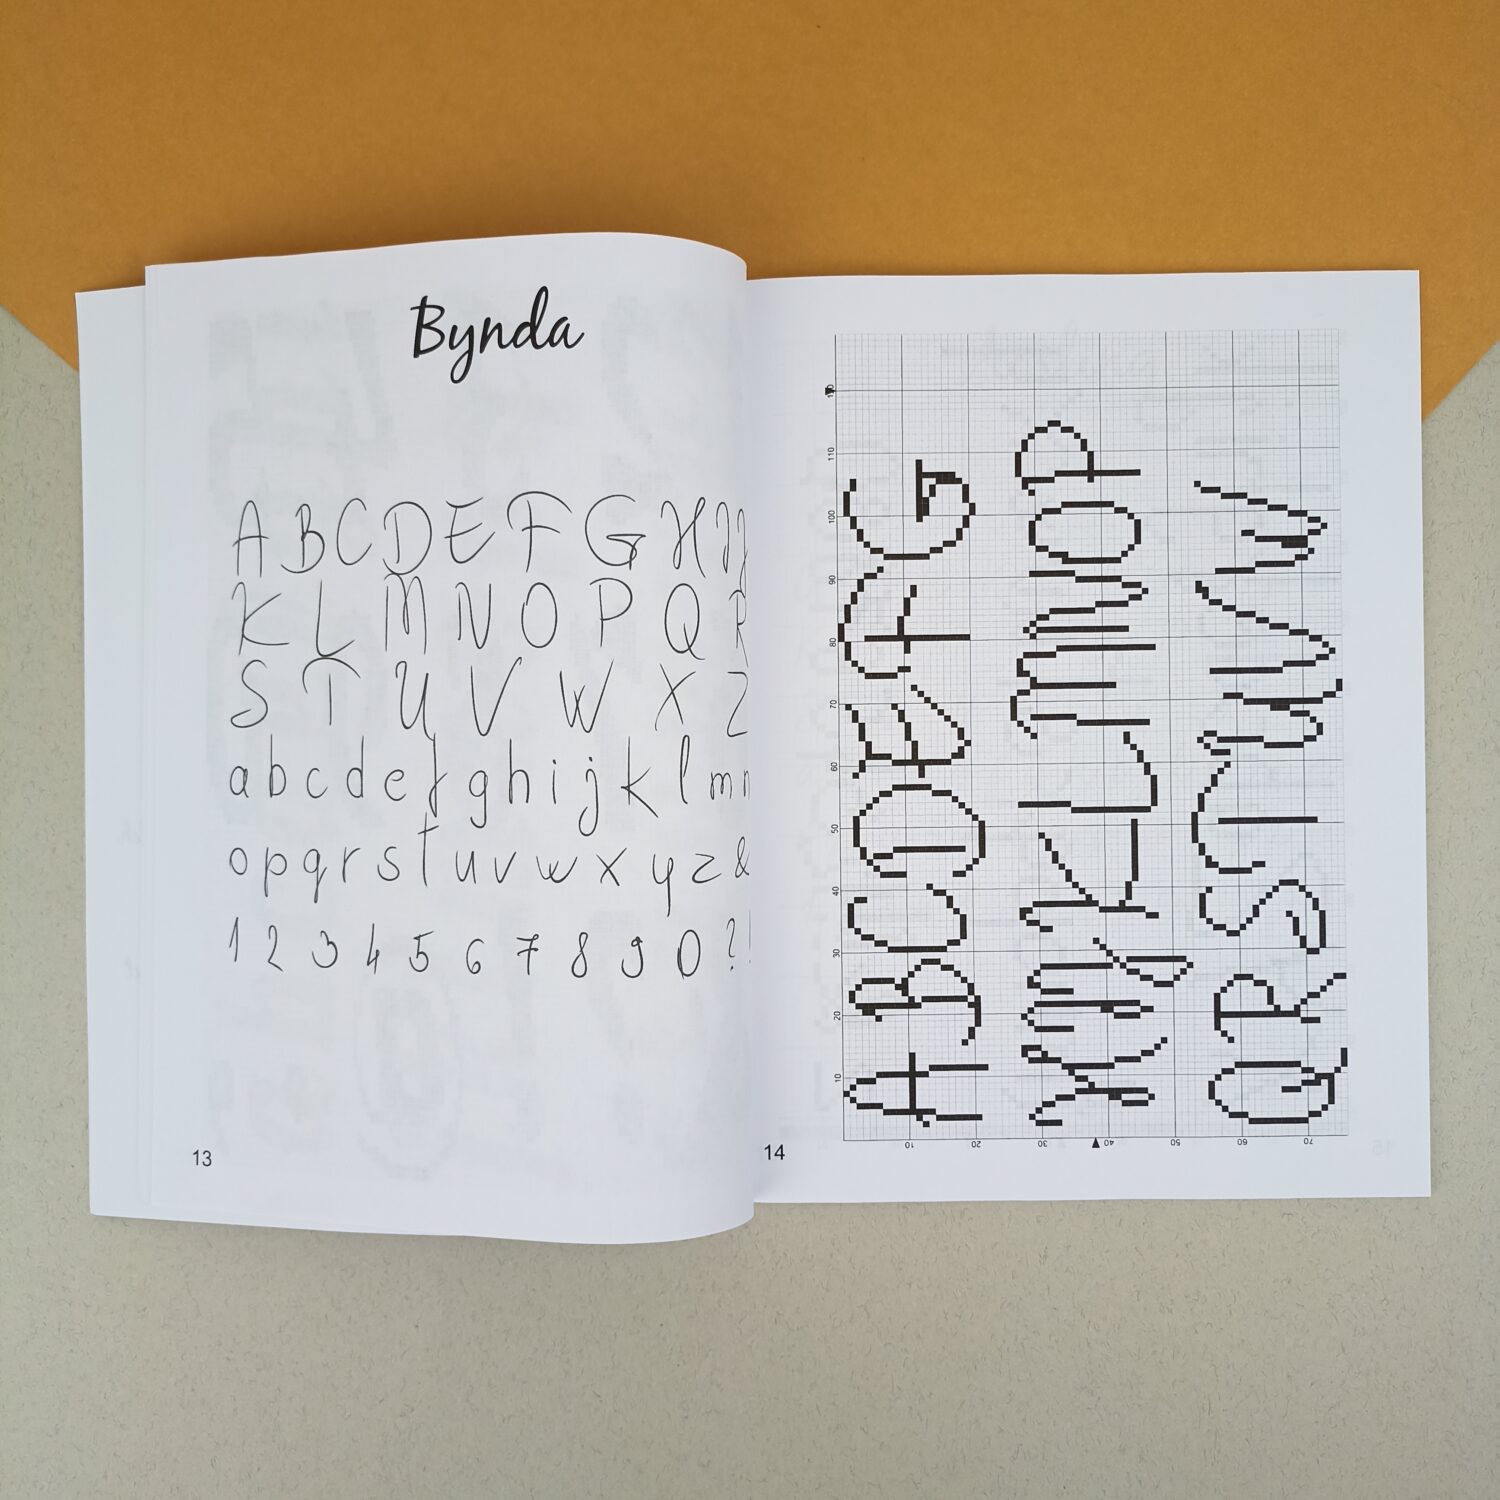 Bynda
A B C D E F G H I J
K L M N O P Q R
S T U V W X Z
a b c d e f g h i j k l m n
o p q r s t u v w x y z &
1 2 3 4 5 6 7 8 9 0 ? !
13
10 20 30 40 50 60 70 80 90 100 110 120
A B C D E F G
H I J K L M N O P
Q R S T U V W
10 20 30 40 50 60 70
14